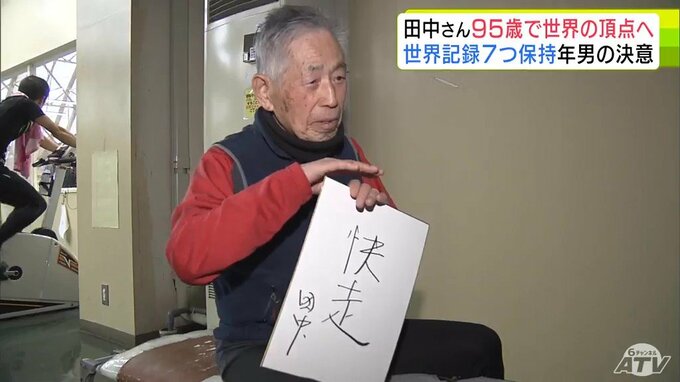 田中さん95歳で世界の頂点へ
世界記録7つ保持年男の決意
快走
田中
6チャンネル
ATV